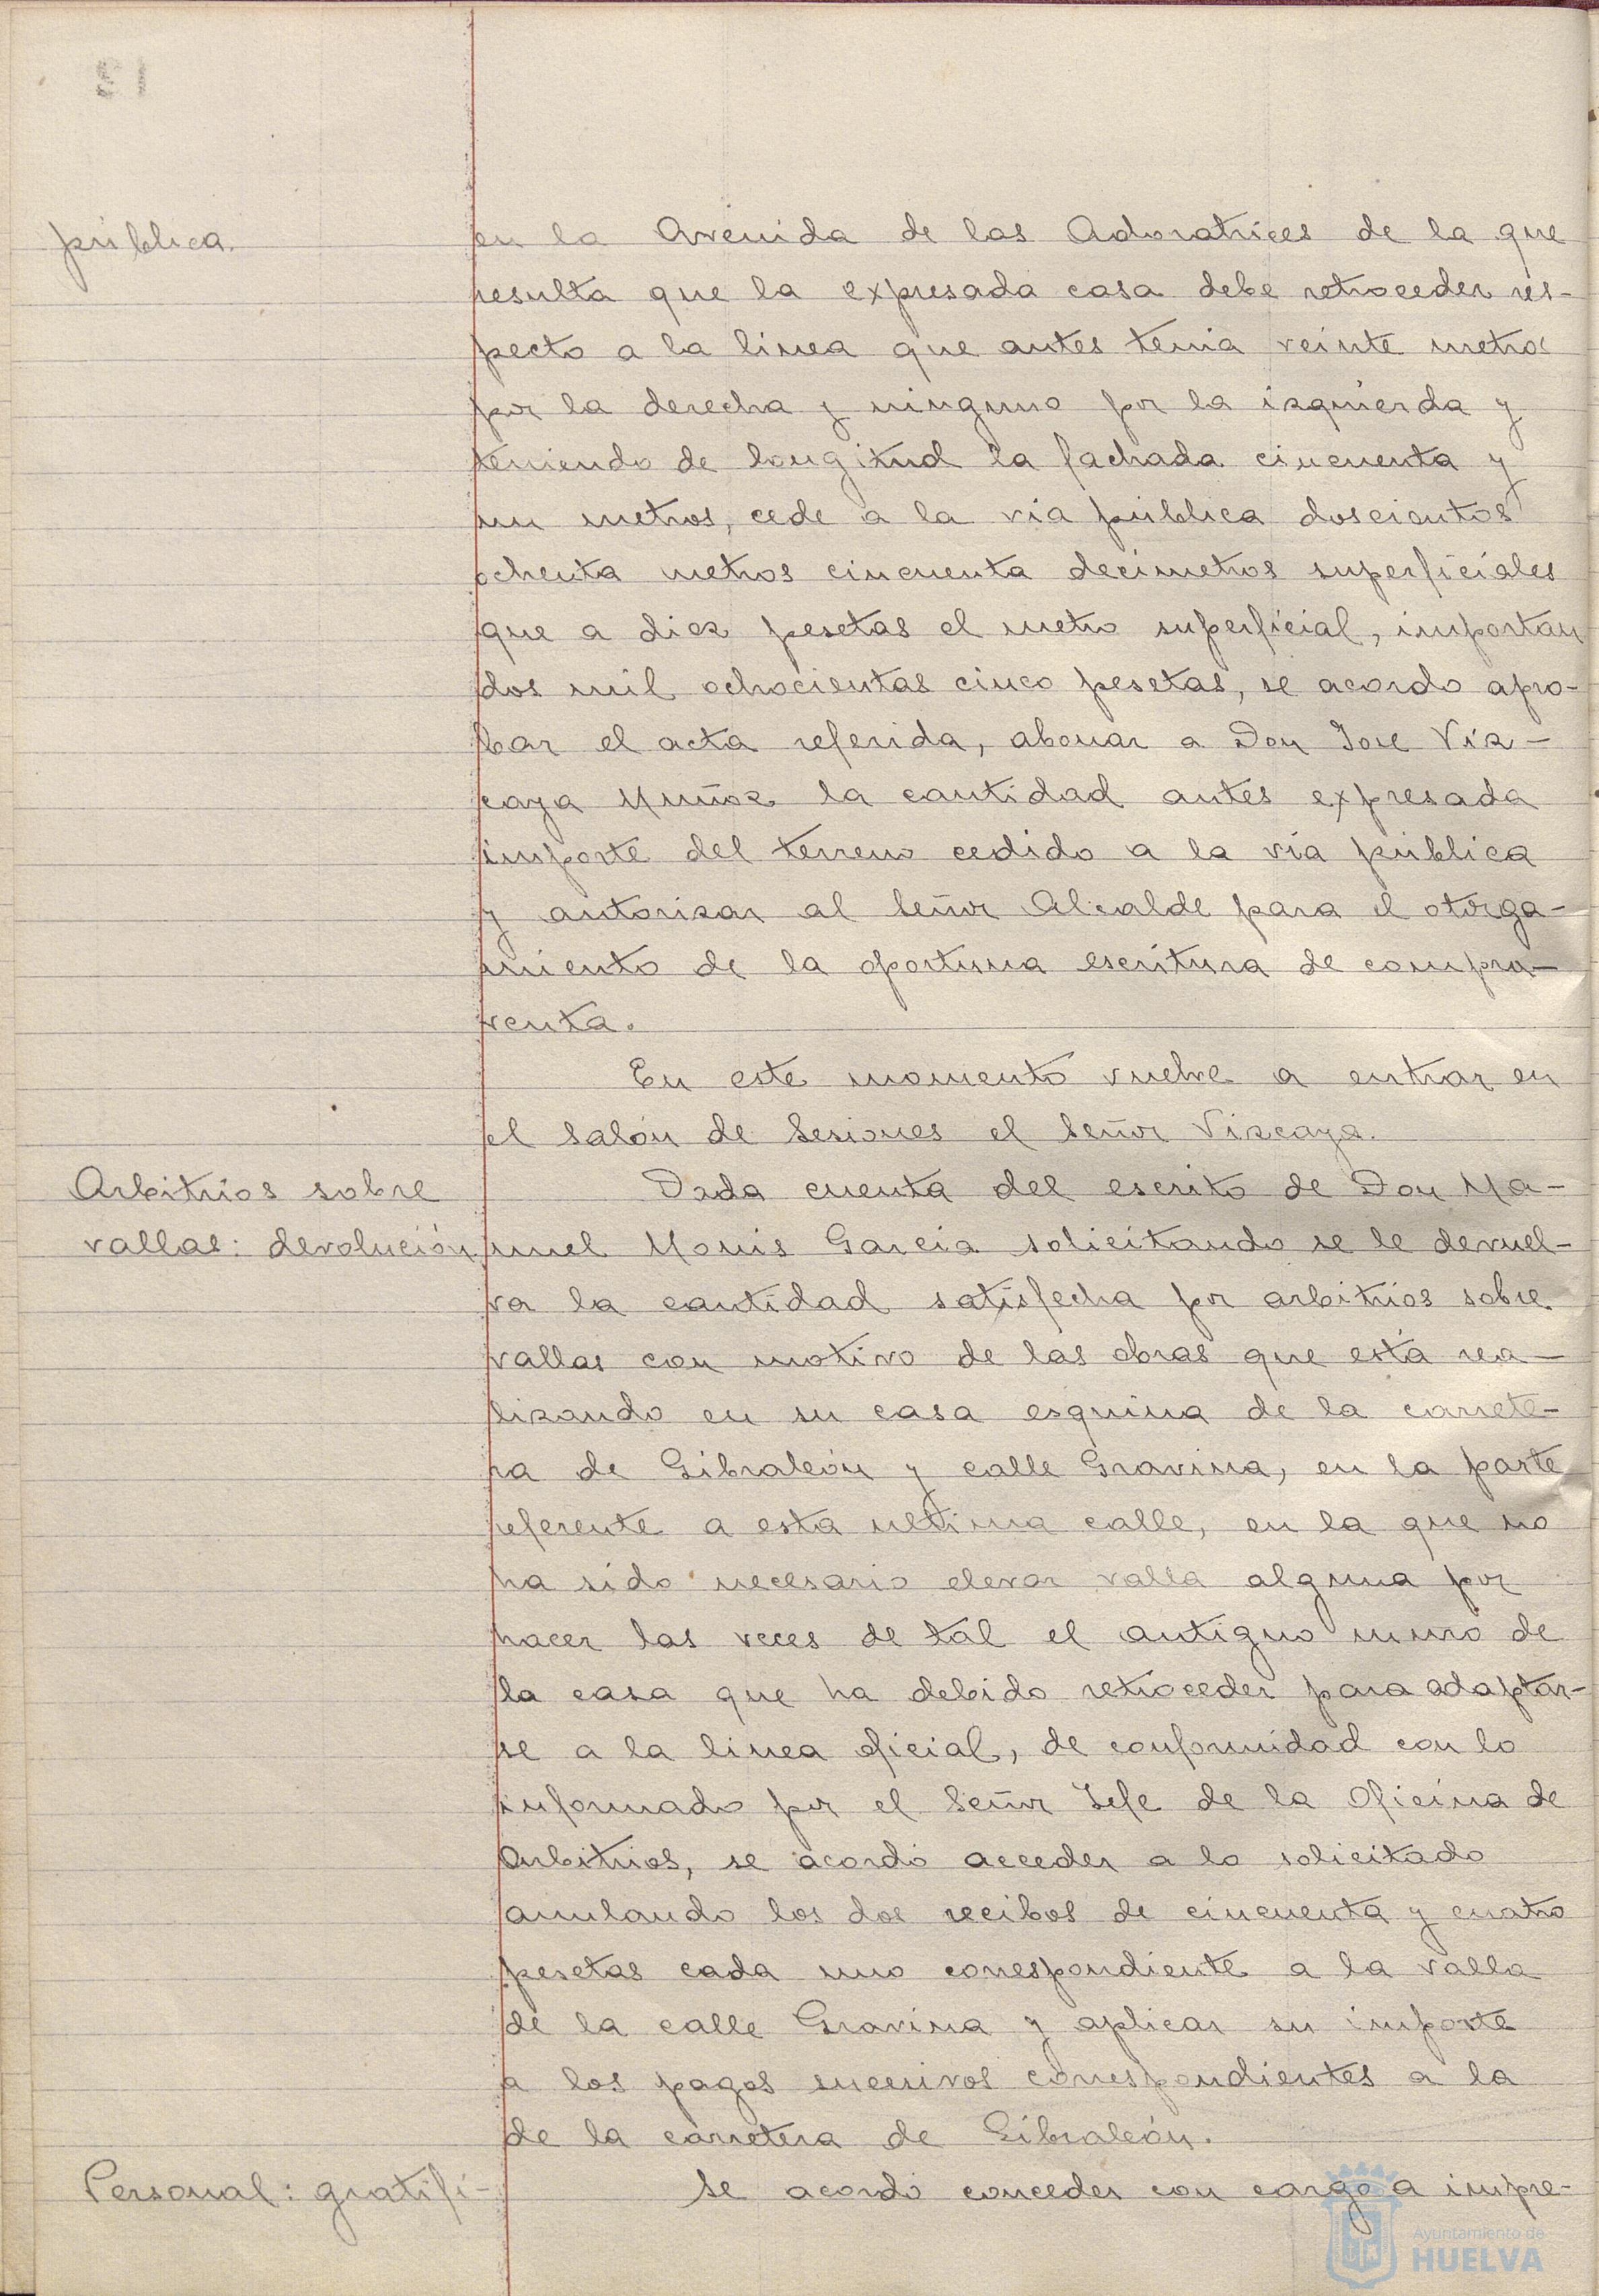 pública.
en la Avenida de las Adoratrices de la que
resulta que la expresada casa debe retroceder res-
pecto a la linea que antes tenia veinte metros
por la derecha y ninguno por la izquierda y
teniendo de longitud la fachada cincuenta y
un metros, cede a la via pública doscientos
ochenta metros cincuenta decimetros superficiales
que a diez pesetas el metro superficial, importan
dos mil ochocientas cinco pesetas, se acordo apro-
bar el acta referida, abonar a Don Jose Viz-
caya Muñoz la cantidad antes expresada
importe del terreno cedido a la via pública
y autorizar al Señor Alcalde para el otorga-
miento de la oportuna escritura de compra-
venta.
En este momento vuelve a entrar en
el salón de Sesiones el Señor Vizcaya.
Arbitrios sobre
vallas: devolución
Dada cuenta del escrito de Don Ma-
nuel Monis Garcia solicitando se le devuel-
va la cantidad satisfecha por arbitrios sobre
vallas con motivo de las obras que está rea-
lizando en su casa esquina de la carrete-
ra de Gibraleón y calle Gravina, en la parte
referente a esta ultima calle, en la que no
ha sido necesario elevar valla alguna por
hacer las veces de tal el antiguo muro de
la casa que ha debido retroceder para adaptar-
se a la linea oficial, de conformidad con lo
informado por el Señor Jefe de la Oficina de
Arbitrios, se acordó acceder a lo solicitado
anulando los dos recibos de cincuenta y cuatro
pesetas cada uno correspondiente a la valla
de la calle Gravina y aplicar su importe
a los pagos sucesivos correspondientes a la
de la carretera de Gibraleón.
Personal: gratifi-
Se acordó conceder con cargo a impre-
Ayuntamiento de
HUELVA